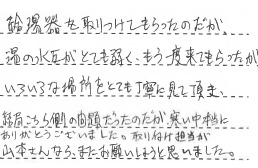 給湯器を取りつけてもらったのだが、
湯の水圧がとても弱く、もう一度来てもらったが
いろいろな場所をとても丁寧に見て頂き、
結局こちら側の問題だったのだが寒い中本当に
ありがとうございました。取り付け担当が
山本さんなら、またお願いしようと思いました。